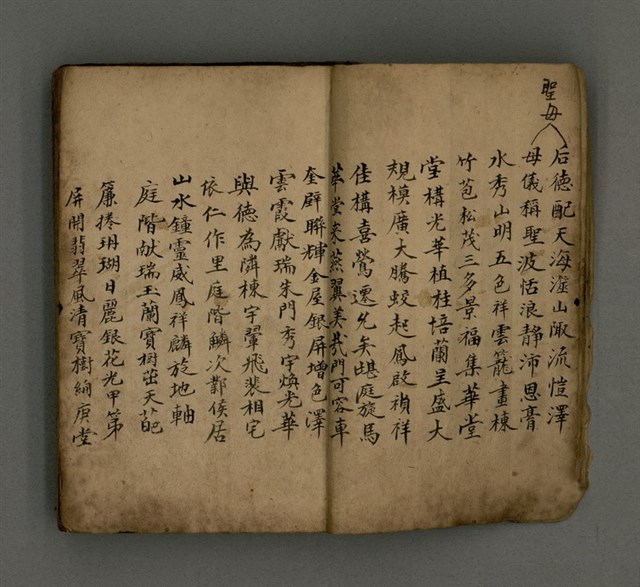 聖母
后德配天海滋山陬流愷澤
母儀稱聖波恬浪靜沛恩膏
水秀山明五色祥雲籠畫棟
竹苞松茂三多景福集華堂
堂構光華植桂培蘭呈盛大
規模廣大騰蛟起鳳啟禎祥
佳構喜鶯遷允矣堪庭旋馬
華堂來燕翼美哉門可容車
奎璧聯輝金屋銀屏增色澤
雲霞獻瑞朱門秀宇煥光華
與德為隣棟宇翬飛裴相宅
依仁作里庭階鱗次鄴侯居
山水鐘靈威鳳祥麟旋地軸
庭階献瑞玉蘭寳樹茁天葩
簾捲珊瑚日麗銀花光甲第
屏開翡翠風清寳樹絢庚堂